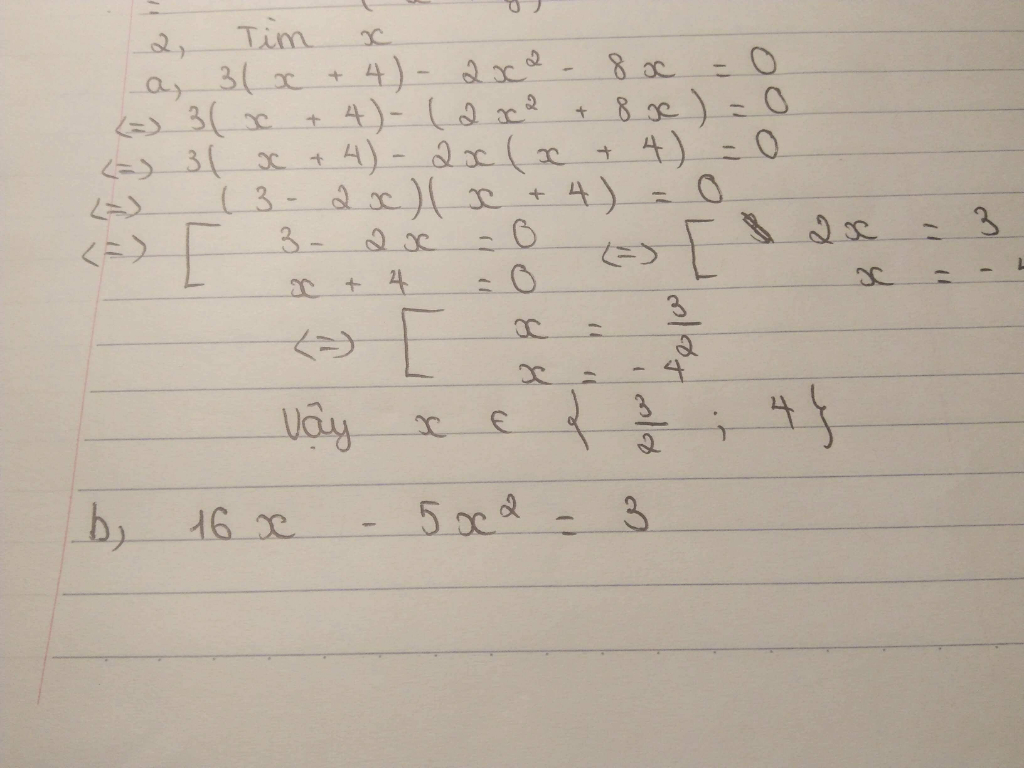 2, Tìm x
a, 3(x + 4) - 2x² - 8x = 0
<=> 3(x + 4) - (2x² + 8x) = 0
<=> 3(x + 4) - 2x(x + 4) = 0
<=> (3 - 2x)(x + 4) = 0
<=> [ 3 - 2x = 0 <=> [ 2x = 3
x + 4 = 0 x = - 4
<=> [ x = 3/2
x = - 4
Vậy x ∈ { 3/2 ; 4 }
b, 16x - 5x² = 3